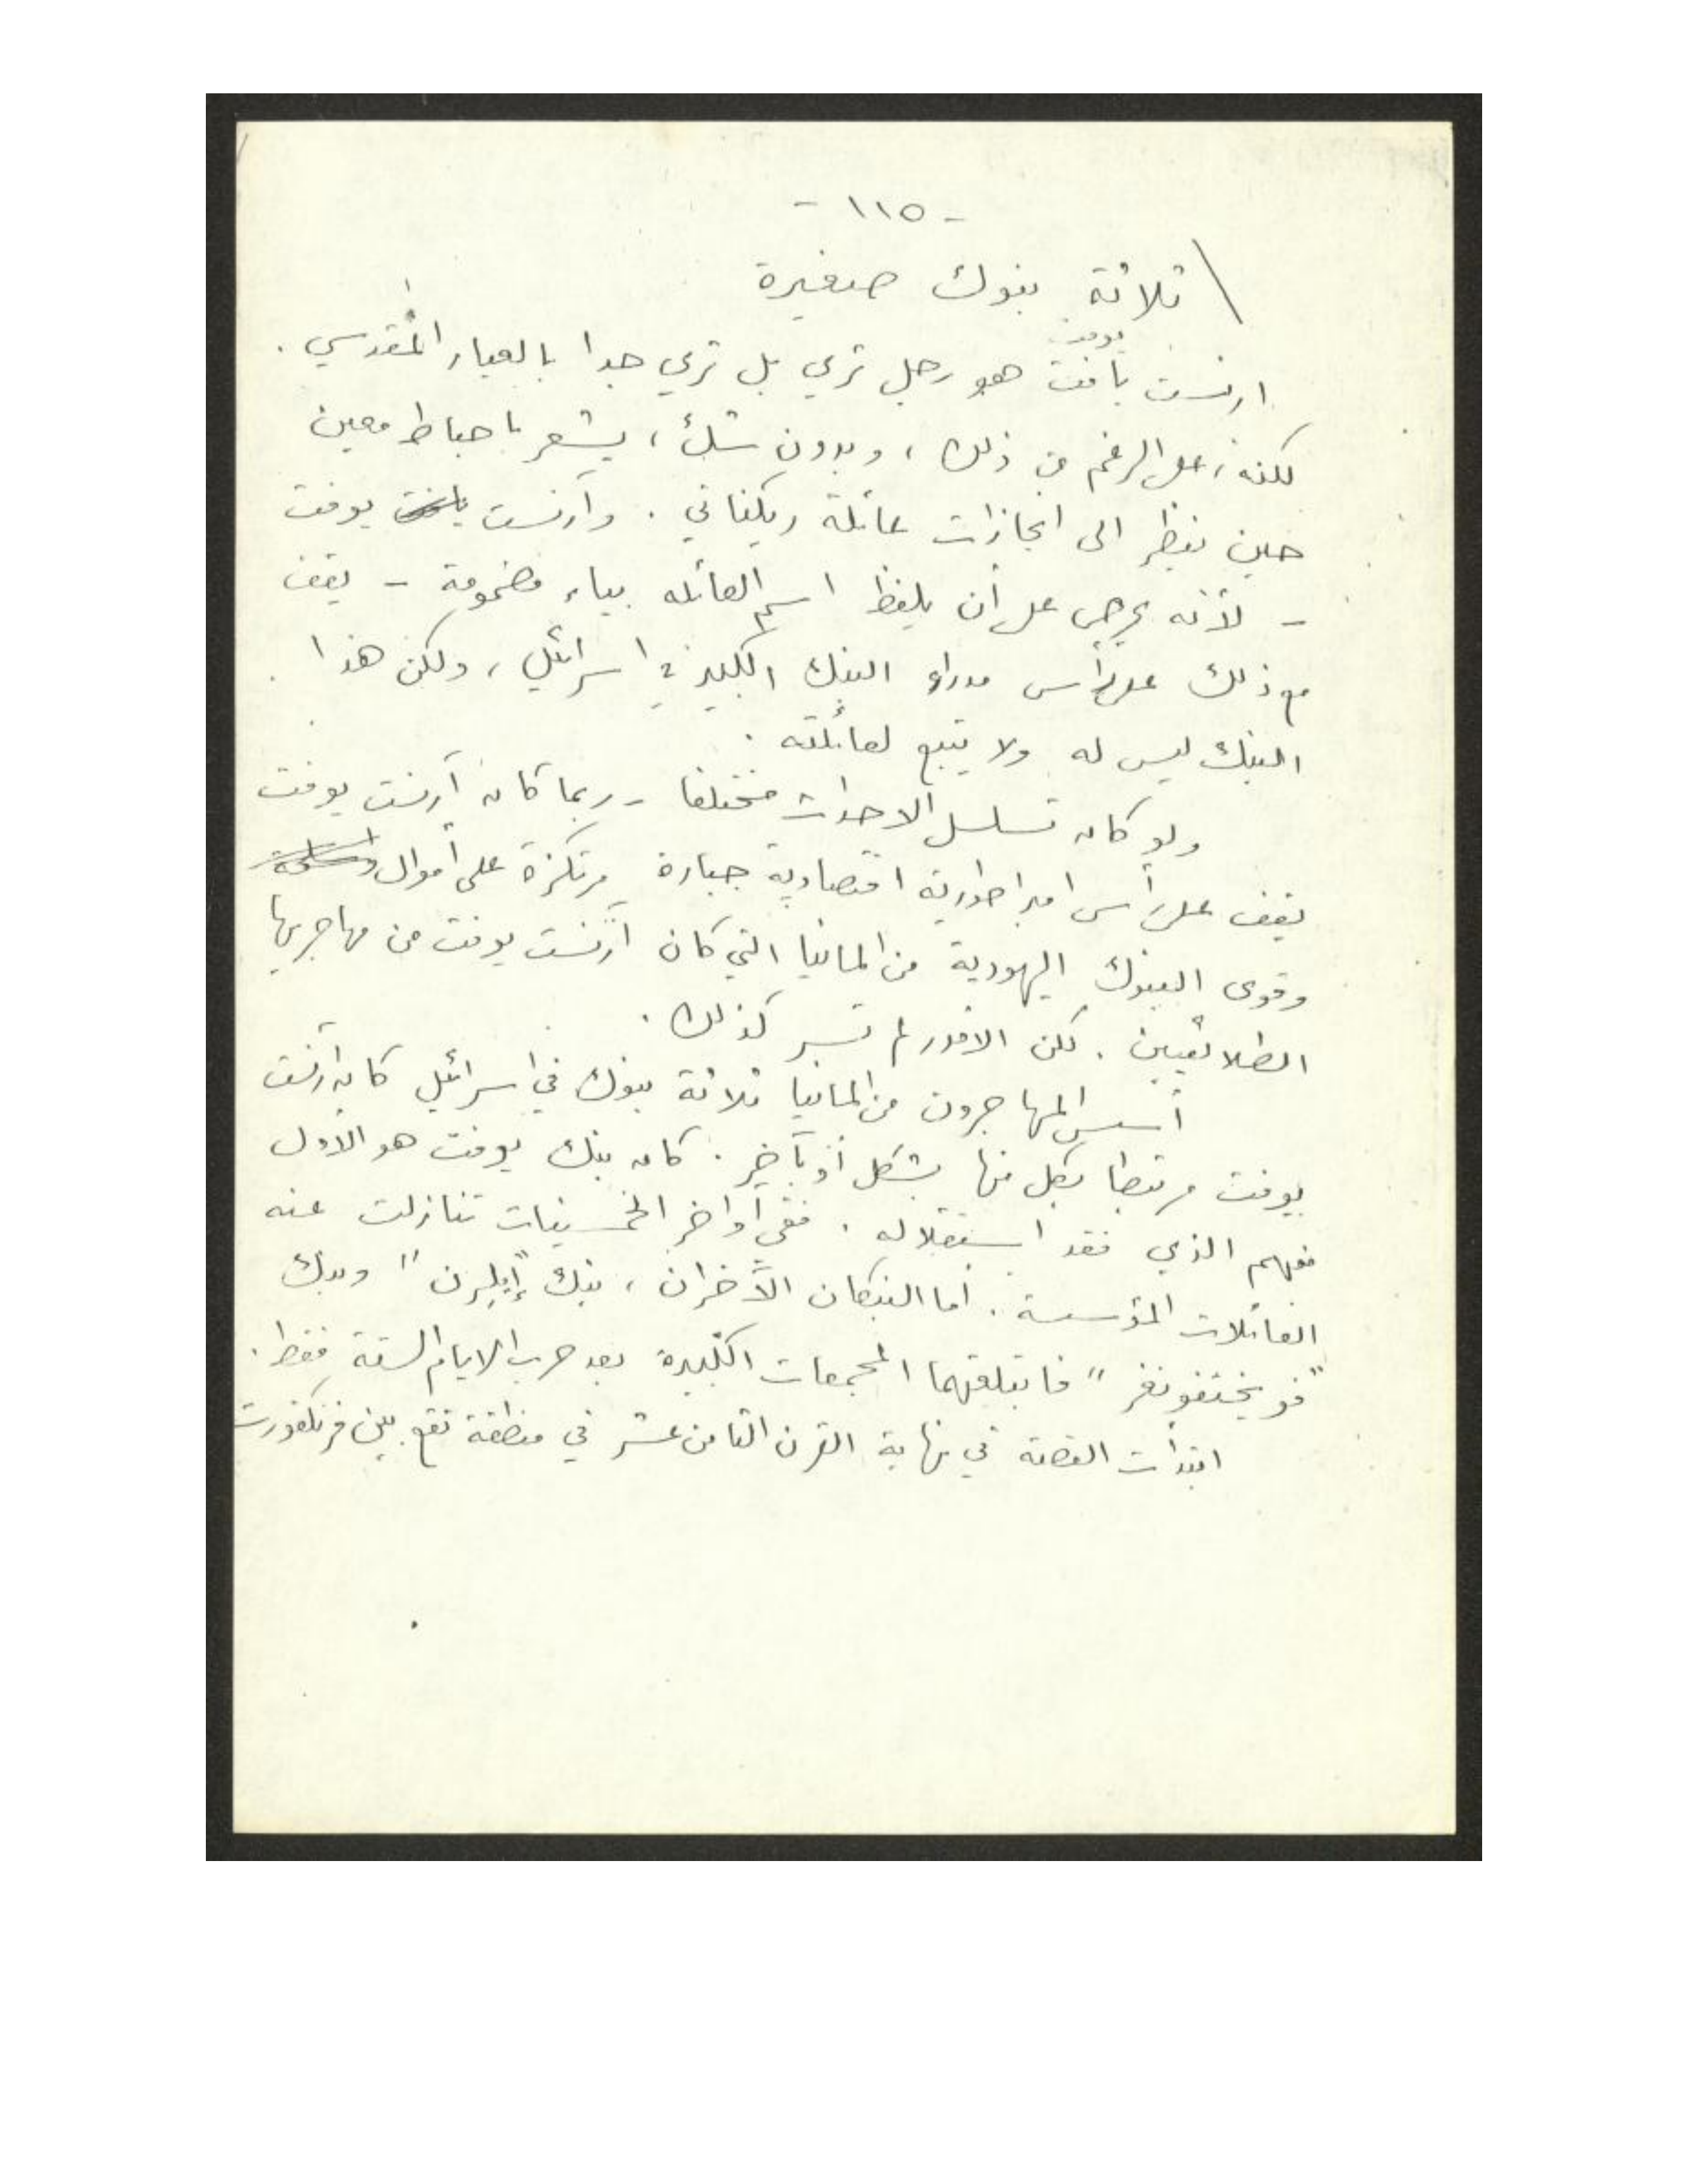 - ١١٥ -
ثلاثة بنوك صغيرة
يوفت
ارنست يافت هو رجل ثري بل ثري جدا بالعيار المقدسي .
لكنه ، على الرغم من ذلك ، وبدون شك ، يشعر باحباط معين
حين ينظر الى انجازات عائلة ريكناتي . وآرنست يافت يوفت
- لأنه يحرص على أن يلفظ اسم العائله بياء مضمومة - يقف
مع ذلك على رأس مدراء البنك الكبير في اسرائيل ، ولكن هذا
البنك ليس له ولا يتبع لعائلته .
ولو كان تسلسل الاحداث مختلفا - ربما كان آرنست يوفت
يقف على رأس امبراطورية اقتصادية جبارة مرتكزة على أموال
وقوى البنوك اليهودية من المانيا التي كان آرنست يوفت من مهاجريها
الطلائعيين . لكن الامور لم تسر كذلك .
أسس المهاجرون من المانيا ثلاثة بنوك في اسرائيل كان آرنست
يوفت مرتبطا بكل منها بشكل أو بآخر . كان بنك يوفت هو الاول
منهم الذي فقد استقلاله . ففي أواخر الخمسينات تنازلت عنه
العائلات المؤسسة . أما البنكان الآخران ، بنك "إيلرن" وبنك
"فويختفونغر" فابتلعتهما المجمعات الكبيرة بعد حرب الايام الستة فقط .
ابتدأت القصة في نهاية القرن الثامن عشر في منطقة تقع بين فرنكفورت